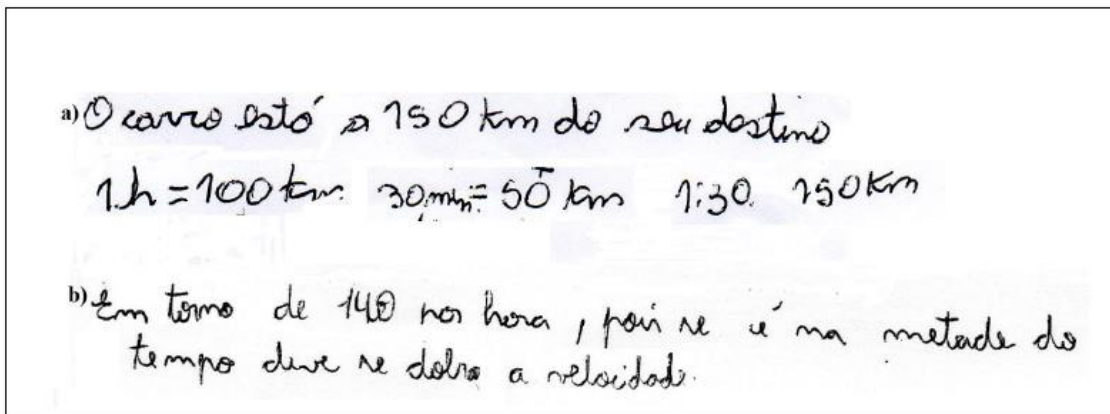 a) O carro está a 150 km do seu destino
1.h = 100 km. 30.min = 50 km 1:30. 150 km
b) Em torno de 140 por hora, pois se é na metade do
tempo deve se dobra a velocidade.